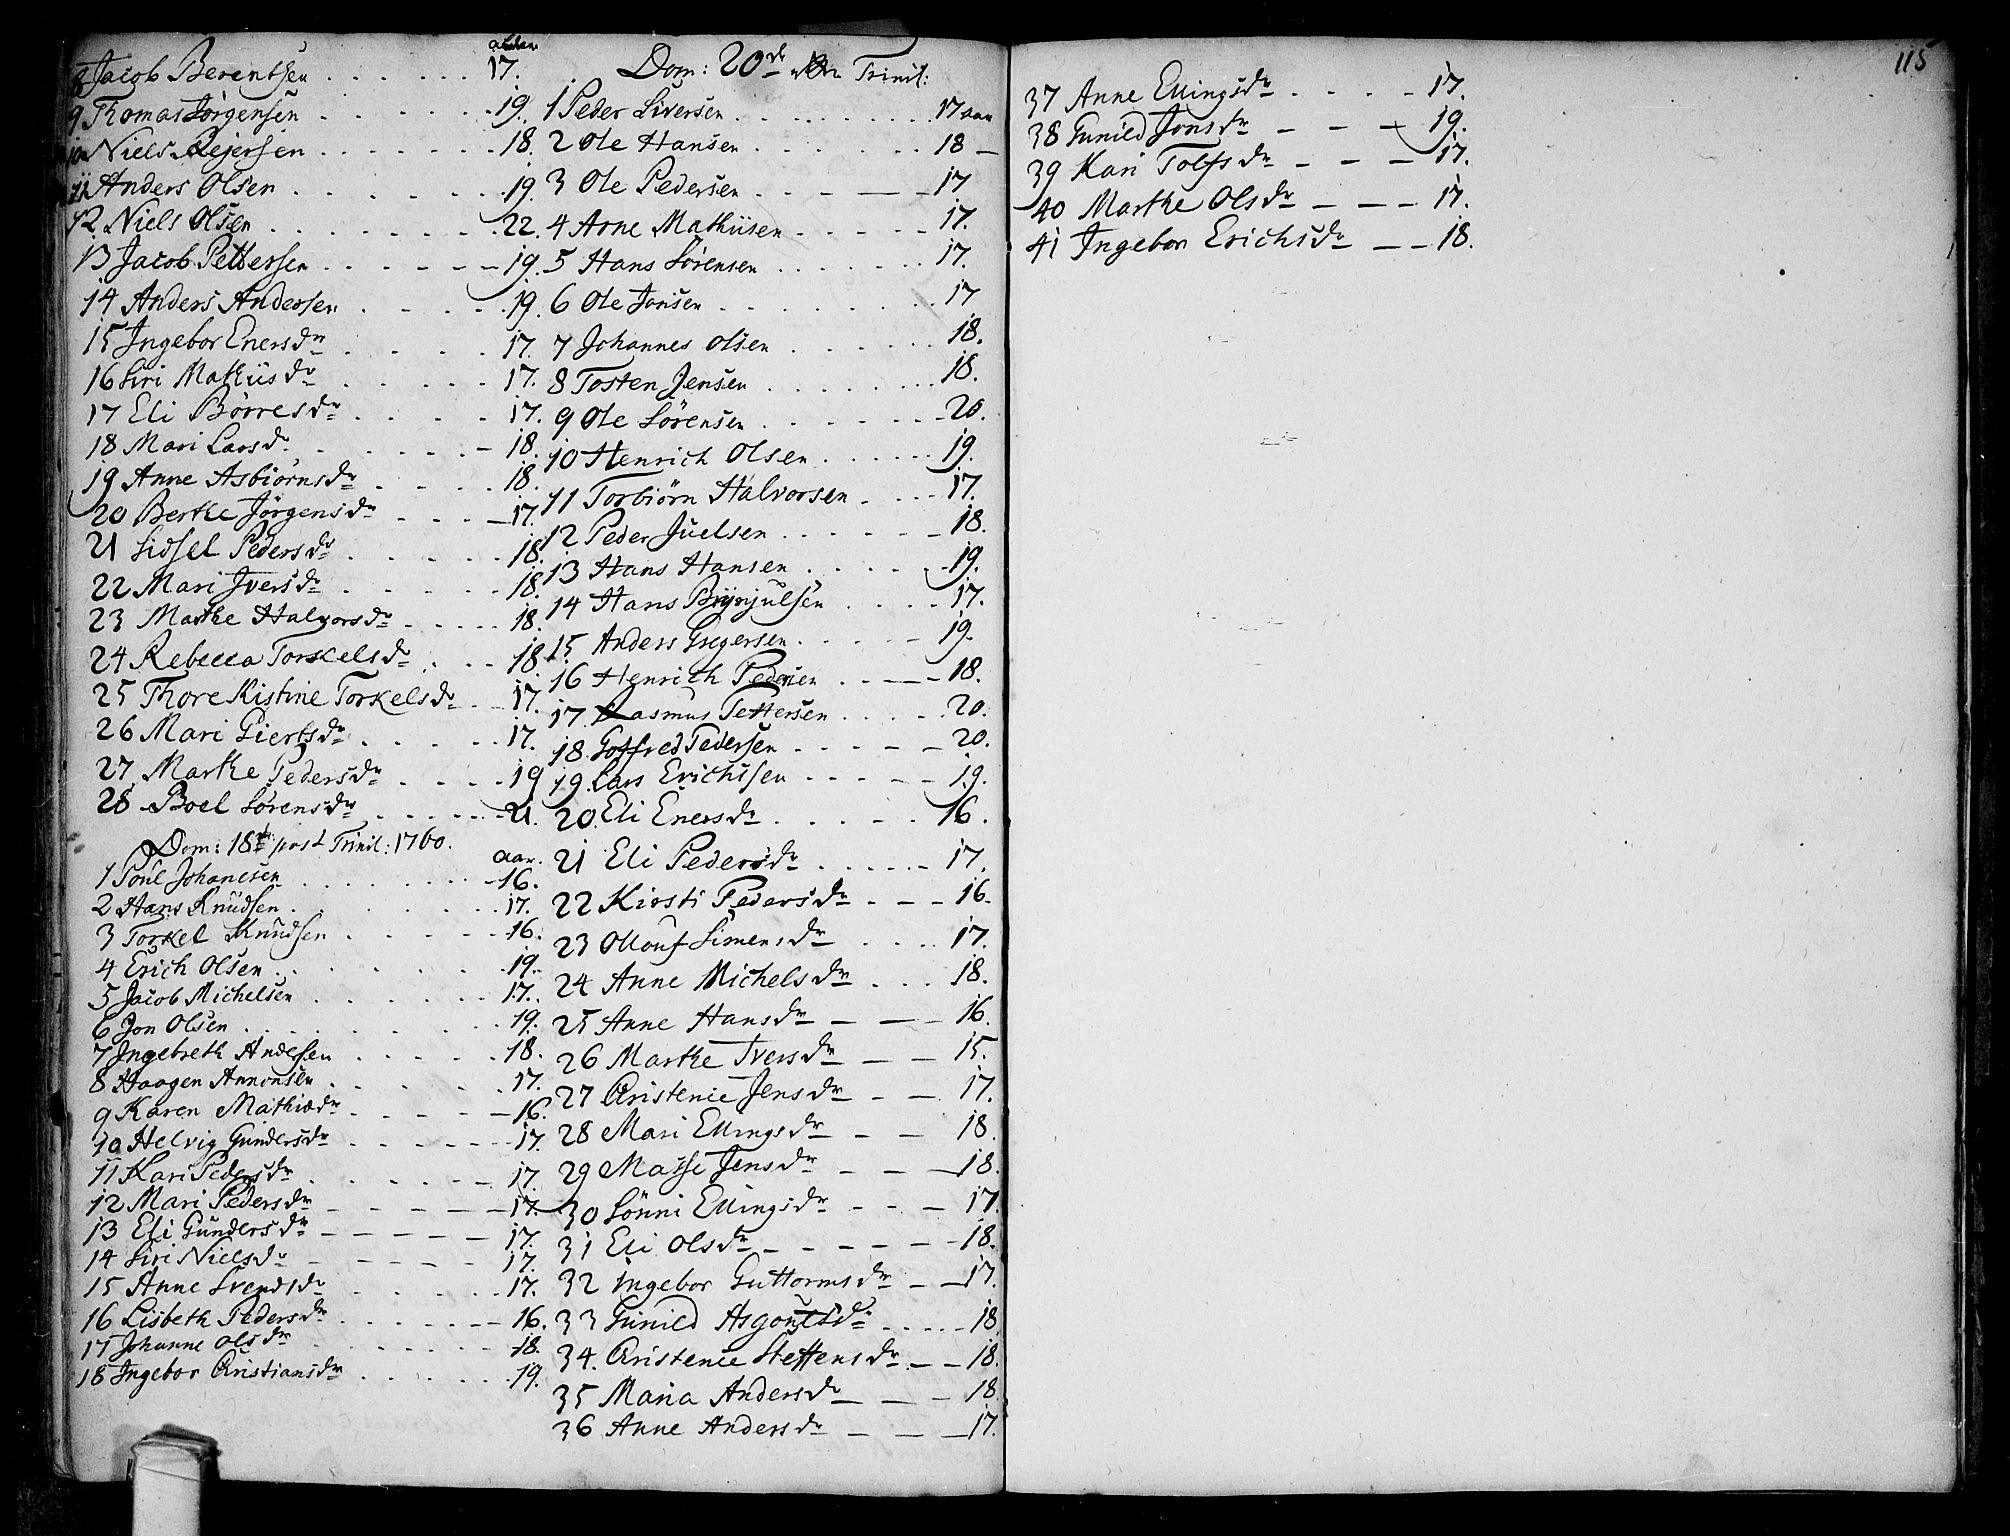 alder
8 Jacob Berentsen . . . . . . 17.
9 Thomas Jørgensen . . . . . . 19.
10 Niels Rejersen . . . . . . 18.
11 Anders Olsen . . . . . . 19
12 Niels Olsen . . . . . . 22.
13 Jacob Pettersen . . . . . . 19.
14 Anders Andersen . . . . . . 19
15 Ingebor Enersdr . . . . 17.
16 Siri Mathiisdr . . . . 17.
17 Eli Børresdr . . . . 17.
18 Mari Larsdr . . . . 18.
19 Anne Asbiørnsdr . . . . 18.
20 Berthe Jørgensdr . . . . 17.
21 Sidsel Pedersdr . . . . 18.
22 Mari Iversdr . . . . 18.
23 Marthe Halvorsdr . . . . 18.
24 Rebecca Torkelsdr . . . . 18
25 Thore Kistine Torkelsdr . . 17.
26 Mari Giertsdr . . . . 17.
27 Marthe Pedersdr . . . . 19
28 Boel Sørensdr . . . . 21.
Dom: 18de post Trinit: 1760.
aar.
1 Poul Johanesen . . . . . . 16.
2 Hans Knudsen . . . . . . 17.
3 Torkel Knudsen . . . . . . 16.
4 Erich Olsen . . . . . . 19.
5 Jacob Michelsen . . . . . . 17.
6 Jon Olsen . . . . . . 19.
7 Ingebreth Andersen . . . . . . 18.
8 Haagen Amonsen . . . . . . 17.
9 Karen Mathiædr . . . . 16.
10 Helvig Gundersdr . . . . 17.
11 Kari Pedersdr . . . . 17.
12 Mari Pedersdr . . . . 17.
13 Eli Gundersdr . . . . 17.
14 Siri Nielsdr . . . . 17.
15 Anne Svendsdr . . . . 17.
16 Lisbeth Pedersdr . . . . 16.
17 Johanne Olsdr . . . . 18.
18 Ingebor Cristiansdr . . . . 19.
Dom: 20de Trinit:
1 Peder Siversen . . . . . . 17 aar
2 Ole Hansen . . . . . . 18 —
3 Ole Pedersen . . . . . . 17
4 Arne Mathiisen . . . . . . 17.
5 Hans Sørensen . . . . . . 17.
6 Ole Jonsen . . . . . . 17
7 Johannes Olsen . . . . . . 18.
8 Tosten Jensen . . . . . . 18.
9 Ole Sørensen . . . . . . 20.
10 Henrich Olsen . . . . . . 19.
11 Torbiørn Halvorsen . . . . 17.
12 Peder Juelsen . . . . . . 18.
13 Hans Hansen . . . . . . 19.
14 Hans Brynjulsen . . . . 17.
15 Anders Gregersen . . . . . 19.
16 Henrich Pedersen . . — — 18.
17. Rasmus Pettersen . . . . . 20.
18. Gotfred Pedersen . . . . 20.
19. Lars Erichssen . . . . 19.
20. Eli Enersdr . . . . . 16.
21 Eli Pedersdr . . . . . 17.
22 Kirsti Pedersdr . . — — 16.
23 Olloug Simensdr . . . . 17.
24 Anne Michelsdr . . . . 18.
25 Anne Hansdr — — — 16.
26 Marthe Iversdr — — 15.
27 Cristence Jensdr — — 17.
28 Mari Ellingsdr — — 18.
29 Massi Jensdr — — — 18.
30 Sønni Ellingsdr — — — 17.
31 Eli Olsdr — — — — 18.
32 Ingebor Guttormsdr — — 17.
33 Gunild Asgoutsdr . . . . . 18
34. Cristence Steffensdr — — 18.
35 Maria Andersdr — — — 18
36 Anne Andersdr — — — 17.
115
37 Anne Ellingsdr . . . . 17.
38 Gunild Jonsdr — — — 19.
39 Kari Tolfsdr — — — 17.
40 Marthe Olsdr — — — 17.
41 Ingebor Erichsdr — — 18.